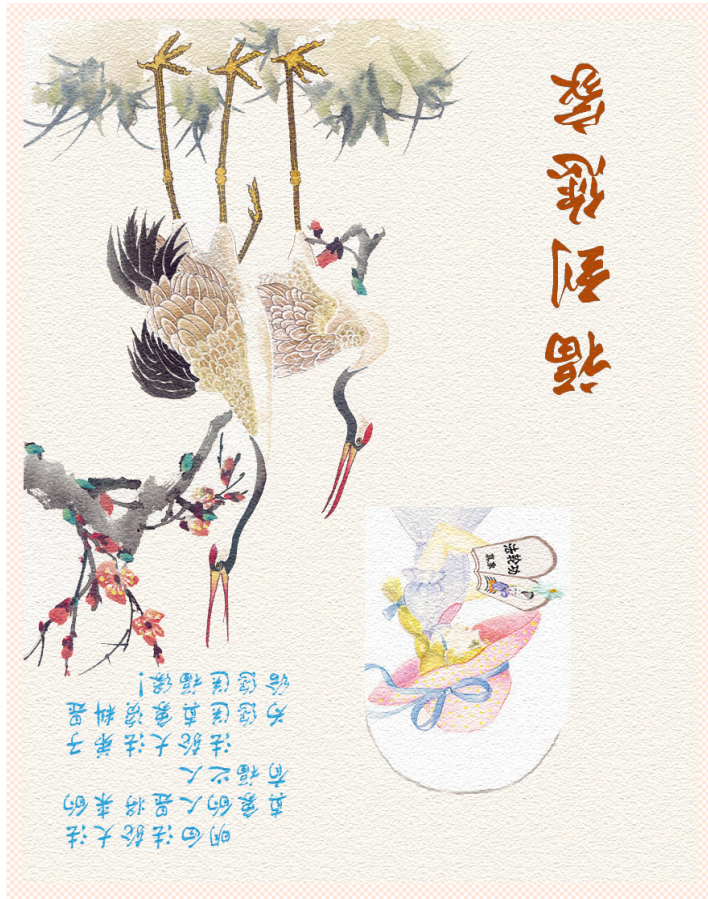 福到您家
明白法轮大法
真象的人是将来的
有福之人
法轮大法弟子
为您送真象资料是
给您送福缘!
法轮功